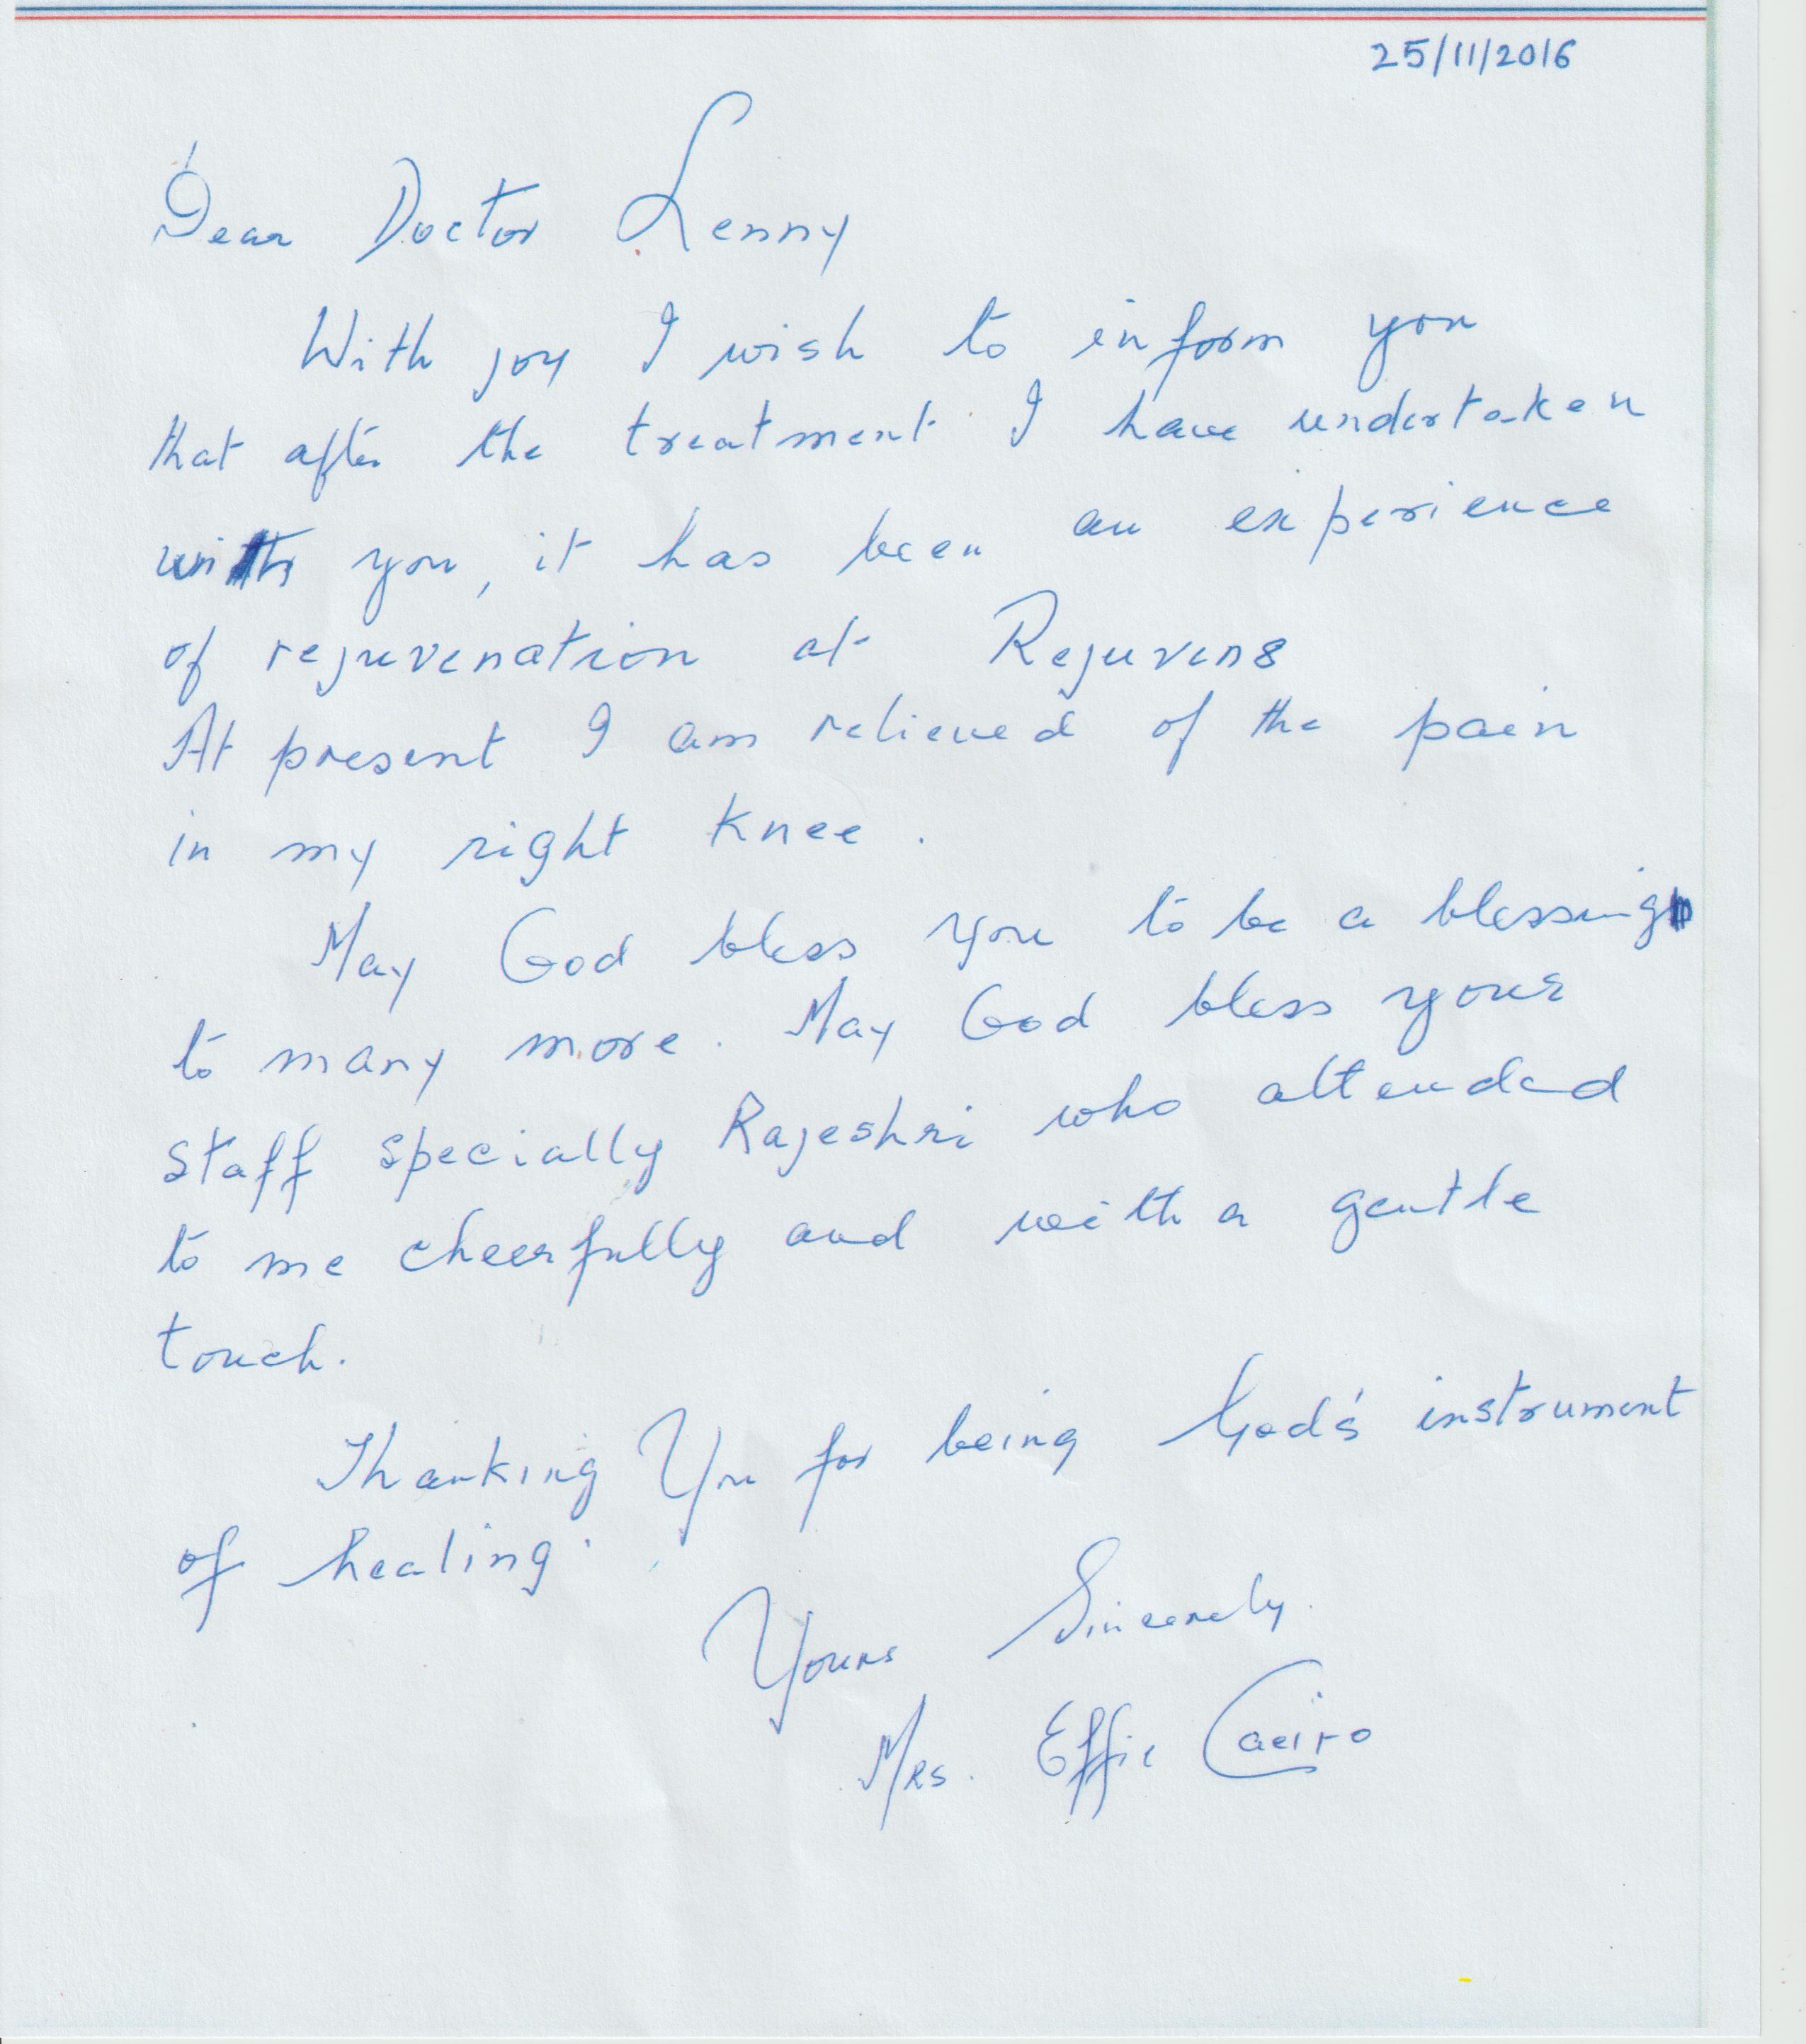 25/11/2016
Dear Doctor Lenny
With joy I wish to inform you
that after the treatment I have undertaken
with you, it has been an experience
of rejuvenation at Rejuvens
At present I am relieved of the pain
in my right knee.
May God bless you to be a blessing
to many more. May God bless your
staff specially Rajeshri who attended
to me cheerfully and with a gentle
touch.
Thanking You for being God's instrument
of healing.
Yours Sincerely.
Mrs. Effie Caeiro